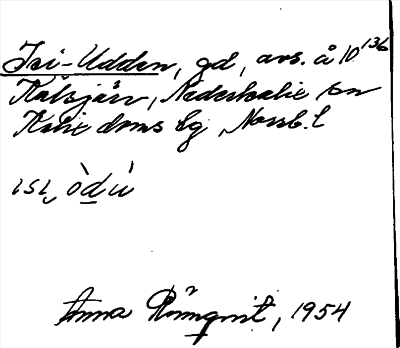 Isi-Udden, gd, avs. å 10 136
Kalsjärv, Nederkalix sn
Kalix doms bg, Norrb. l
ɩsɩ, òdù
Anna Rönnqvist, 1954